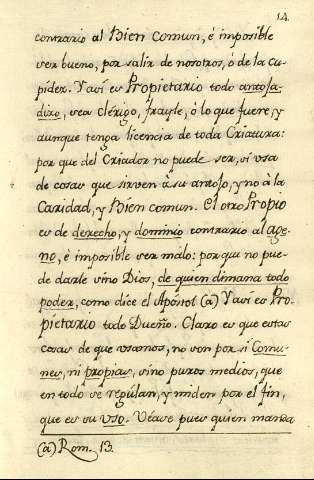 14.
contrario al Bien comun, è imposible
ser bueno, por salir de nosotros, ò de la cu-
pidez. Y asi es Propietario todo antoja-
dizo, sea Clérigo, frayle, ò lo que fuere, y
aunque tenga licencia de toda Criatura:
por que del Criador no puede ser, si usa
de cosas que sirven à su antojo, y no à la
Caridad, y Bien comun. El otro Propio
es de derecho, y dominio contrario al age-
no, è imposible ser màlo: porque no pue-
de darle sino Dios, de quien dimana todo
poder, como dice el Apóstol (a) Y asi es Pro-
pietario todo Dueño. Claro es que estas
cosas de que usamos, no son por si Comu-
nes, ni propias, sino puros medios, que
en todo se regùlan, y miden por el fin,
que es su uso. Véase pues quien manda
(a) Rom. 13.